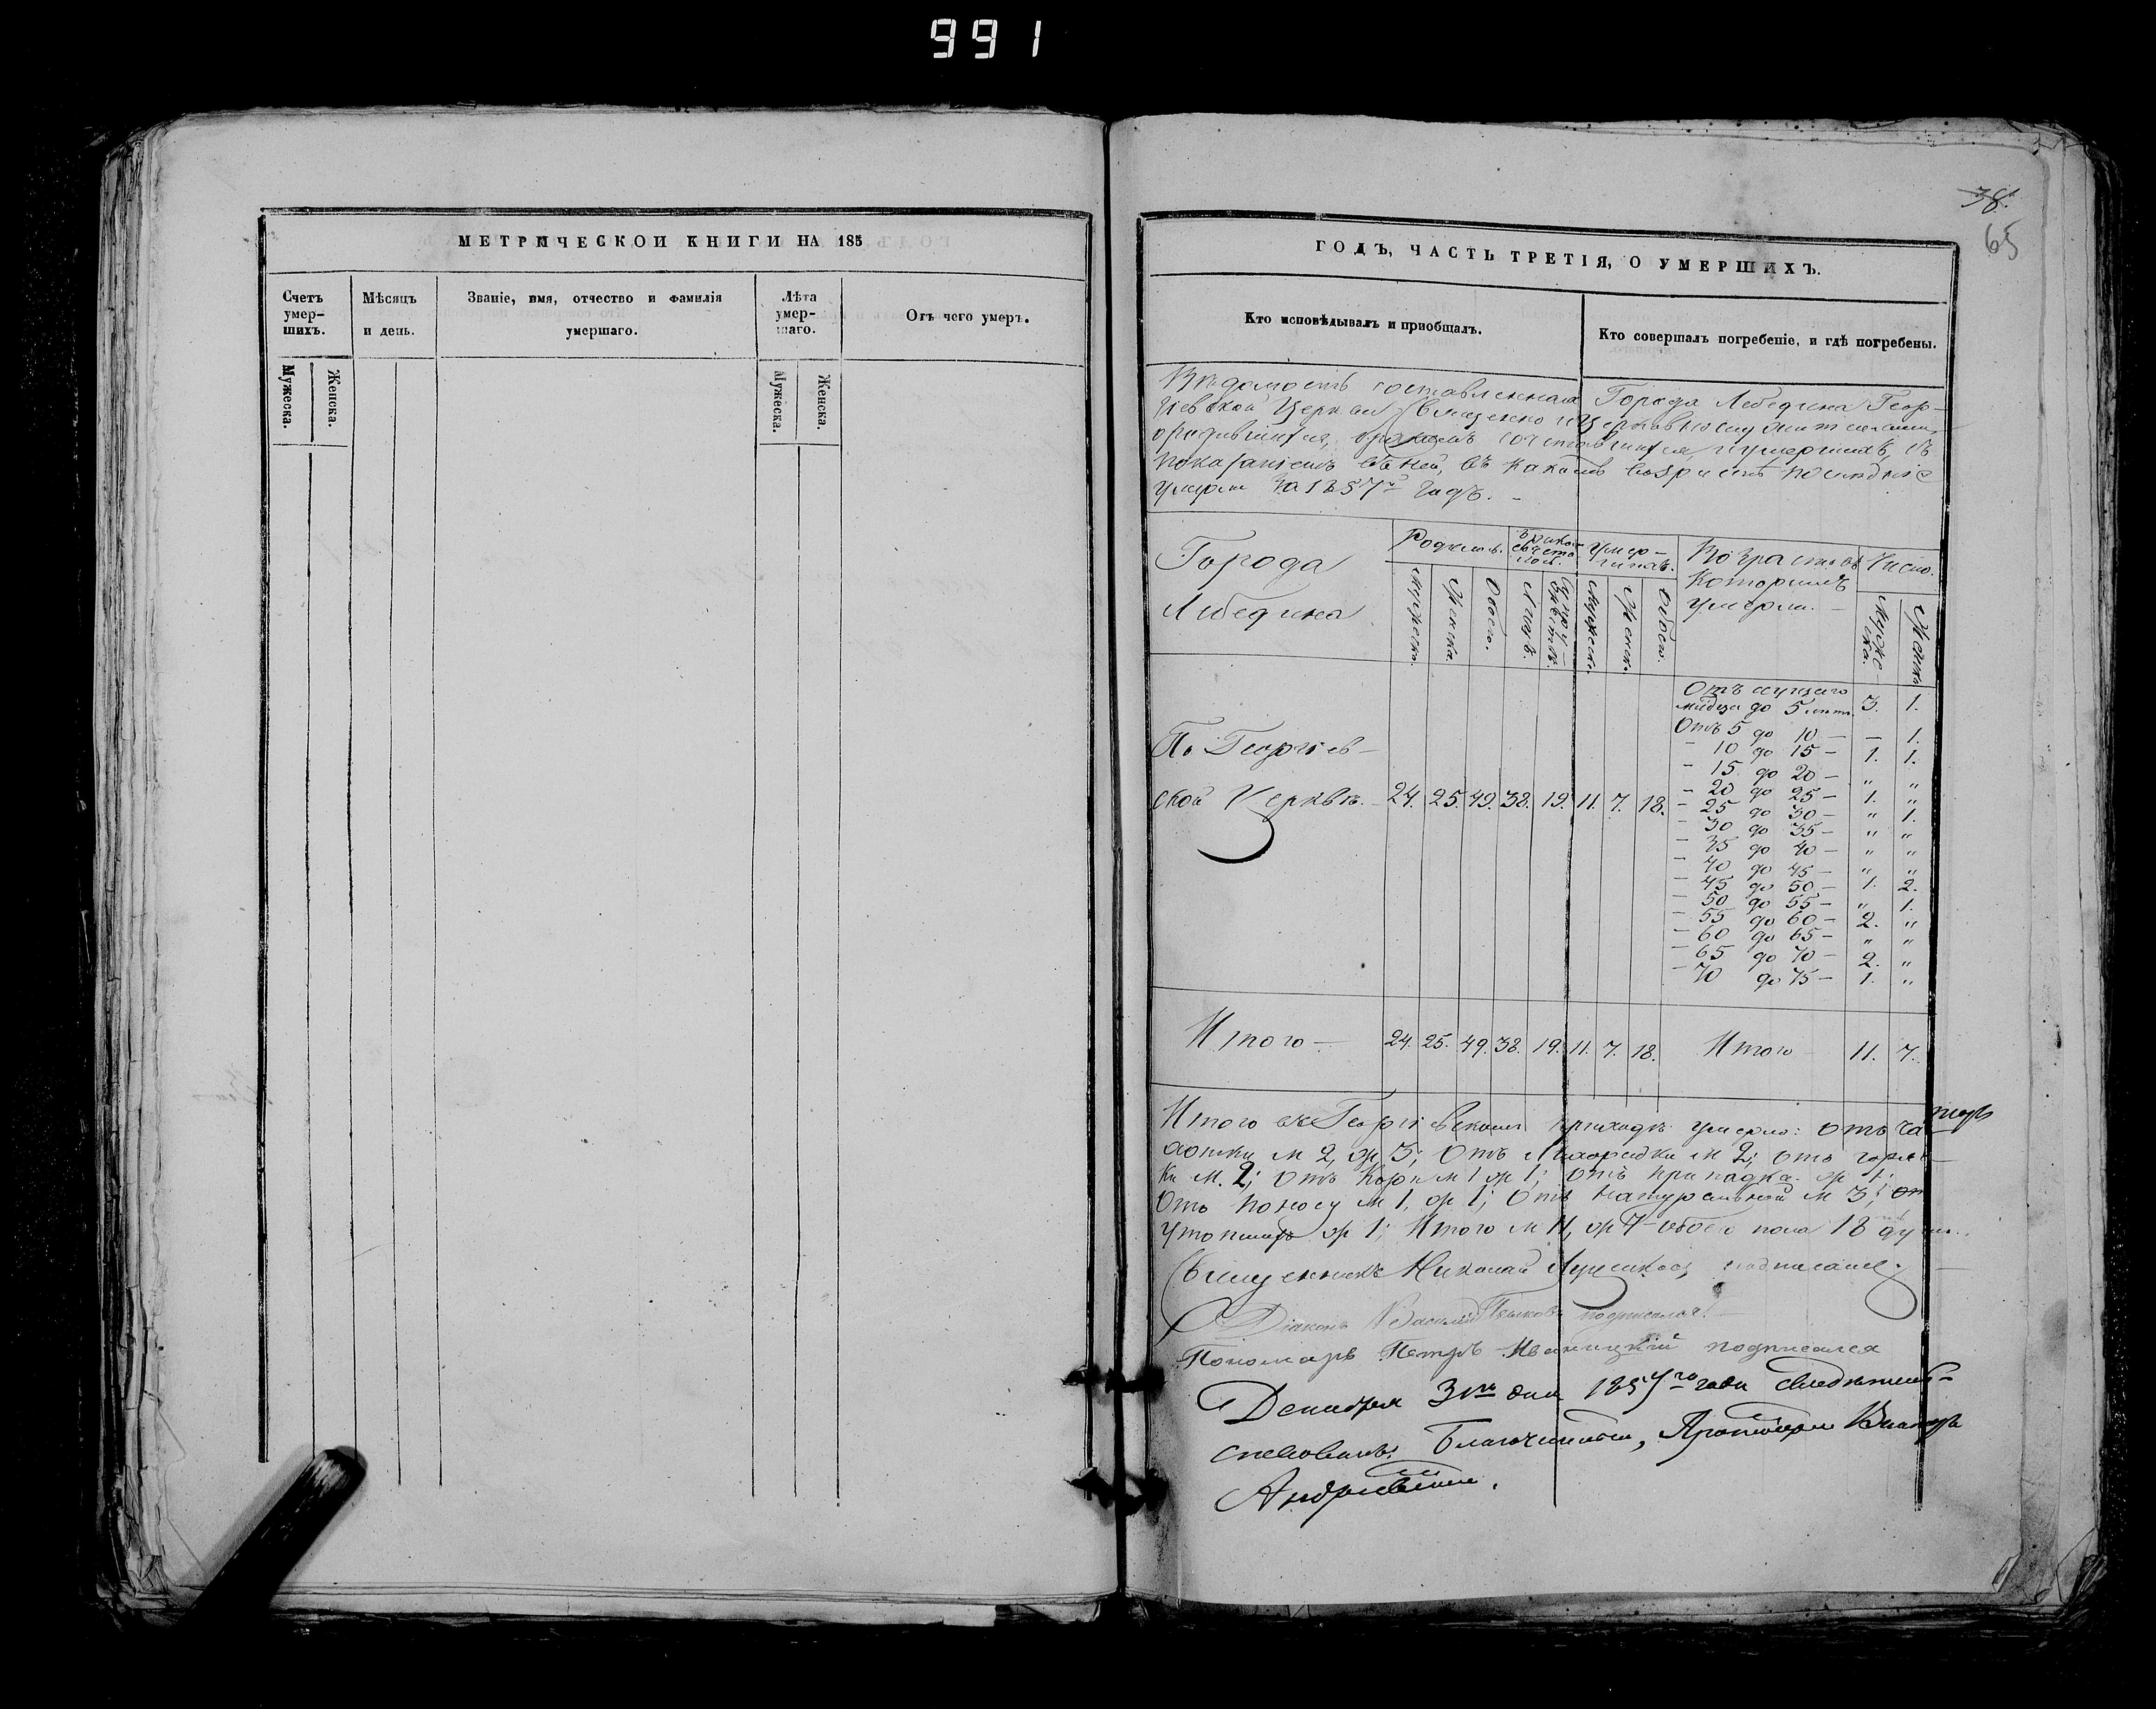 991
МЕТРИЧЕСКОЙ КНИГИ НА 185
Счетъ умер-шихъ.
Мѣсяцъ и день.
Званіе, имя, отчество и фамилія умершаго.
Лѣта умер-шаго.
Отъ чего умеръ.
Мужеска.
Женска.
Мужеска.
Женска.
38.
65
ГОДЪ, ЧАСТЬ ТРЕТІЯ, О УМЕРШИХЪ.
Кто исповѣдывалъ и пріобщалъ.
Кто совершалъ погребеніе, и гдѣ погребены.
Вѣдомость составленная Города Лебедина Геор-
гіевской Церкви Священно и Церковнослужителями
о родившихся, бракомъ сочетавшихся, и умершихъ, съ
показаніемъ въ какомъ возрастѣ послѣдніе
умерли за 1857й годъ.
Города
Лебедина
Родилось.
Мужеска.
Женска.
Обоего.
Умер-
шихъ.
Мужеск.
Женск.
Обоего.
Возрастъ въ
которомъ
умерли.
Число.
Муже-
ска.
Женск.
По Георгіев-
ской Церквѣ. 24. 25. 49. 38. 19. 11. 7. 18.
Отъ
до 5 лѣтъ. 3. 1.
Отъ 5 до 10 — — 1.
— 10 до 15 — 1. 1.
— 15 до 20 — " "
— 20 до 25 — 1. "
— 25 до 30 — " 1.
— 30 до 35 — " "
— 35 до 40 — " "
— 40 до 45 — " "
— 45 до 50 — 1. 2.
— 50 до 55 — " 1.
— 55 до 60 — 2. "
— 60 до 65 — " "
— 65 до 70 — 2. "
— 70 до 75 — 1. "
Итого — 24. 25. 49. 38. 19. 11. 7. 18. Итого 11. 7.
Итого въ Георгіевскомъ приходѣ умерло: отъ ча-
хотки м 2, ж 3; Отъ Лихорадки м 2; отъ горяч-
ки м. 2; Отъ Кори м 1 ж 1; отъ припадка ж 1;
Отъ поносу м 1, ж 1; Отъ натуральной м 3;
ж 1; Итого м 11, ж 7 обоего пола 18 душъ.
Священникъ Николай подписался.
Діаконъ Василій подписался.
Пономарь Петръ Иваницкій подписался
Декабря 31го дня 1857го года свидѣтель-
ствовалъ Благочинный, Протоіерей